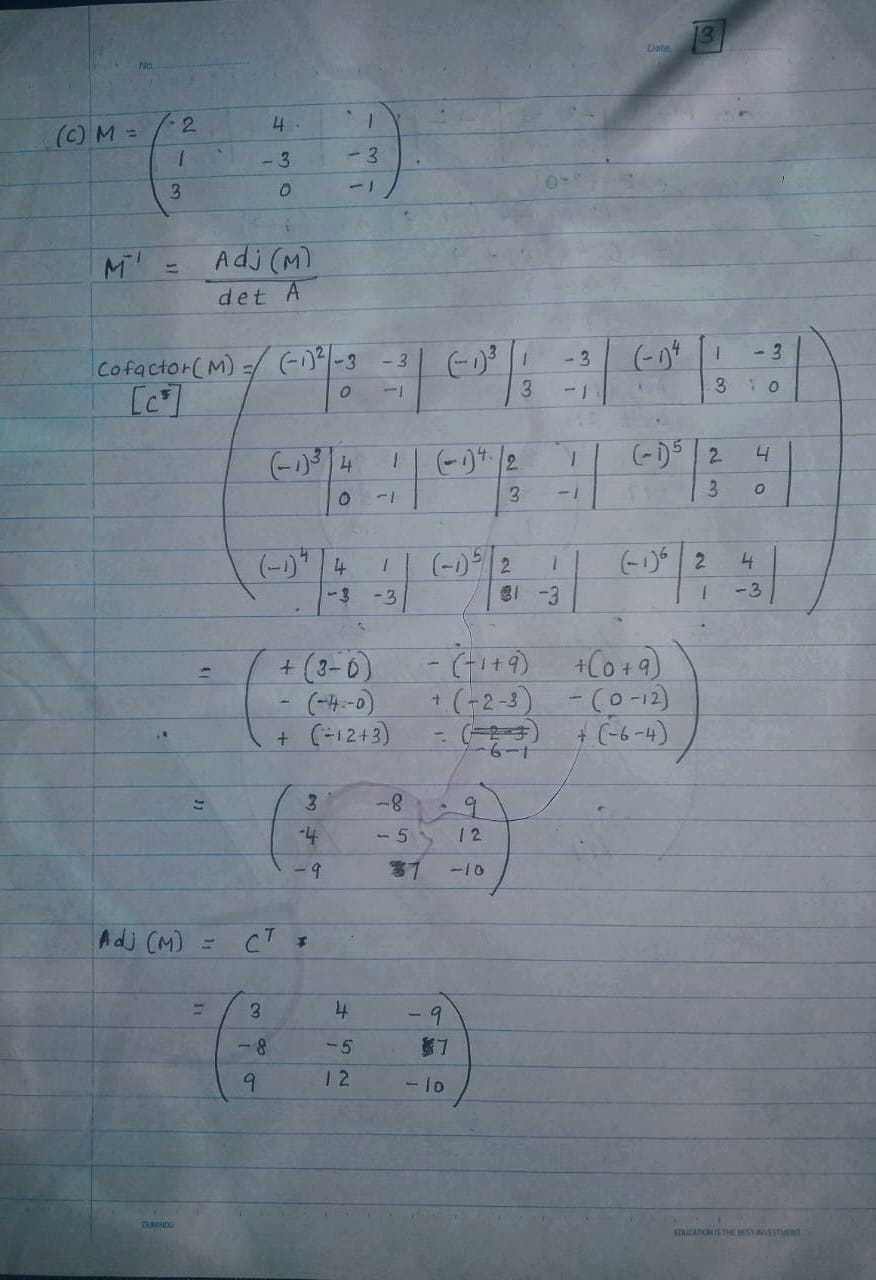 No. Date. 3
(C) M = ( 2 4 1
1 -3 -3
3 0 -1 )
M⁻¹ = Adj (M)
det A
Cofactor(M) = ( (-1)² | -3 -3 | (-1)³ | 1 -3 | (-1)⁴ | 1 -3 |
| 0 -1 | | 3 -1 | | 3 0 |
(-1)³ | 4 1 | (-1)⁴ | 2 1 | (-1)⁵ | 2 4 |
| 0 -1 | | 3 -1 | | 3 0 |
(-1)⁴ | 4 1 | (-1)⁵ | 2 1 | (-1)⁶ | 2 4 |
| -3 -3 | | 1 -3 | | 1 -3 | )
= ( + (3-0) - (-1+9) +(0+9)
- (-4-0) + (-2-3) - (0-12)
+ (-12+3) - (-6-1) + (-6-4) )
= ( 3 -8 9
4 -5 12
-9 7 -10 )
Adj (M) = Cᵀ
= ( 3 4 -9
-8 -5 7
9 12 -10 )
EDUCATION IS THE BEST INVESTMENT